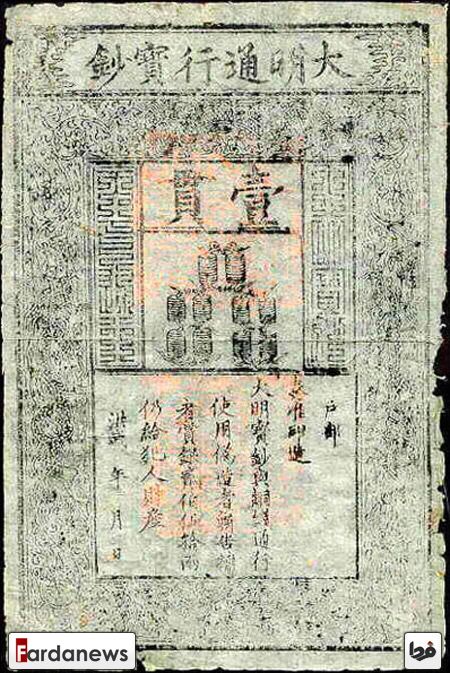 大明通行寶鈔
壹貫
戶部
奏准印造
大明寶鈔與銅錢通行
使用偽造者斬告捕
者賞銀貳伯伍拾兩
仍給犯人財產
年 月 日
Fardanews
فردا